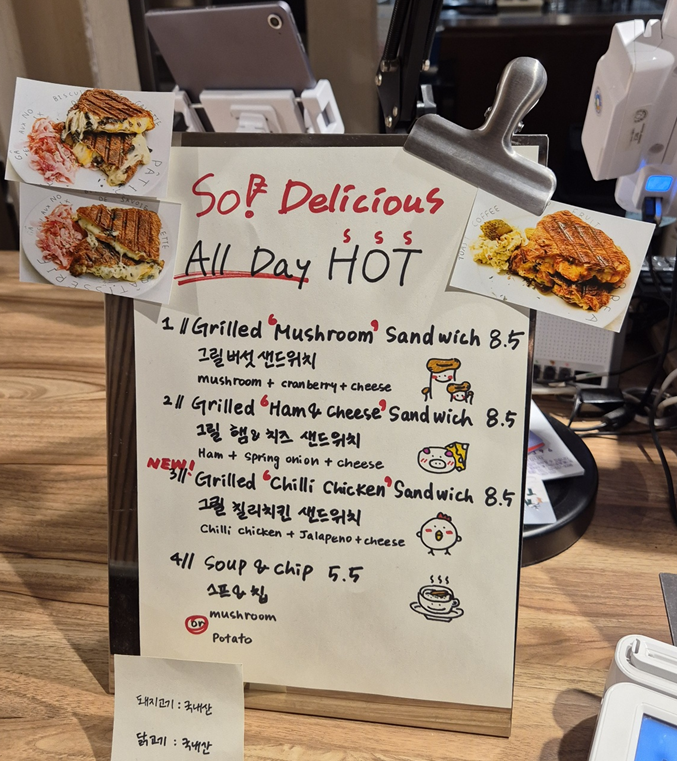 So! Delicious
All Day HOT
S S S
1 // Grilled 'Mushroom' Sandwich 8.5
그릴 버섯 샌드위치
mushroom + cranberry + cheese
2// Grilled 'Ham & Cheese' Sandwich 8.5
그릴 햄 & 치즈 샌드위치
Ham + Spring onion + cheese
NEW!
3// Grilled 'Chilli Chicken' Sandwich 8.5
그릴 칠리치킨 샌드위치
Chilli chicken + Jalapeno + cheese
4// Soup & chip 5.5
스프 & 칩
mushroom
or
Potato
돼지고기 : 국내산
닭고기 : 국내산